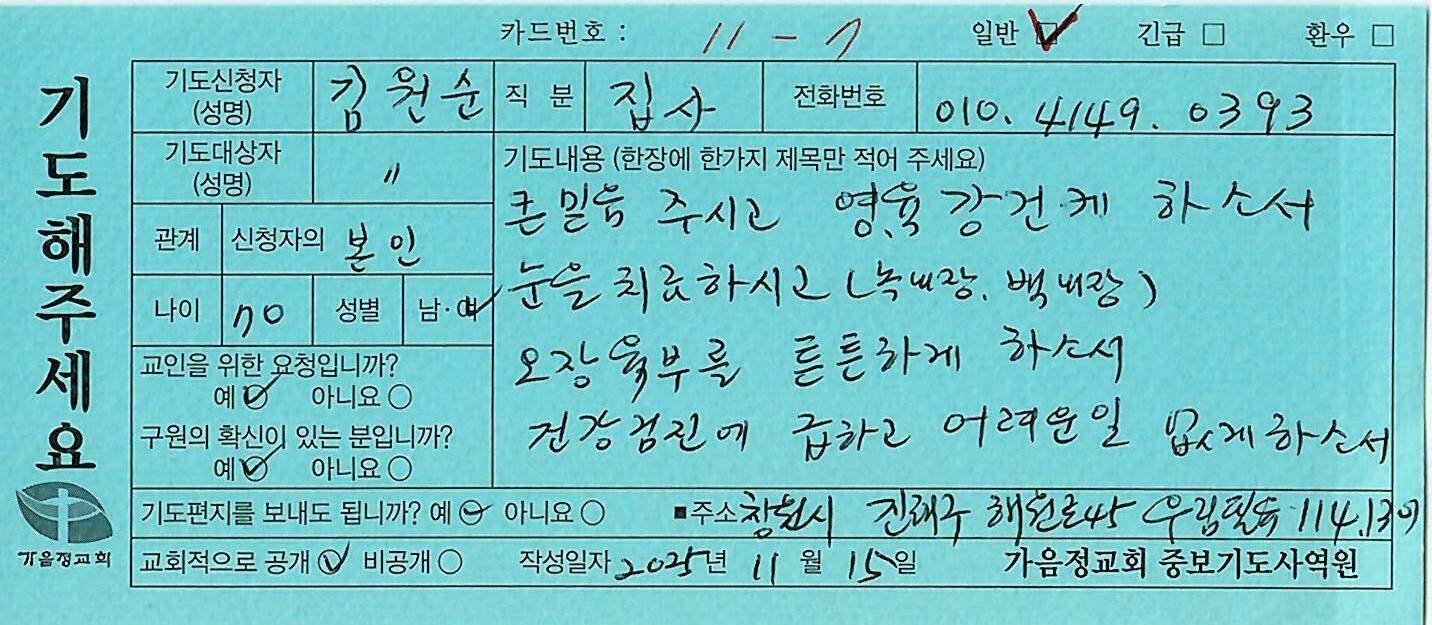 카드번호 : 11 - 7 일반 ☑ 긴급 □ 환우 □
기도해주세요
기도신청자 (성명) 김원순 직 분 집사 전화번호 010. 4149. 0393
기도대상자 (성명) 〃
관계 신청자의 본인
나이 70 성별 남 · 여
교인을 위한 요청입니까?
예 ○ 아니요 ○
구원의 확신이 있는 분입니까?
예 ○ 아니요 ○
기도내용 (한장에 한가지 제목만 적어 주세요)
큰 믿음 주시고 영.육 강건케 하소서
눈을 치료하시고 (녹내장. 백내장)
오장육부를 튼튼하게 하소서
건강검진에 급하고 어려운일 없게하소서
기도편지를 보내도 됩니까? 예 ○ 아니요 ○ ■주소 창원시 진해구 해원로45 우림필유 114.
교회적으로 공개 ○ 비공개 ○ 작성일자 2025년 11 월 15일 가음정교회 중보기도사역원
가음정교회